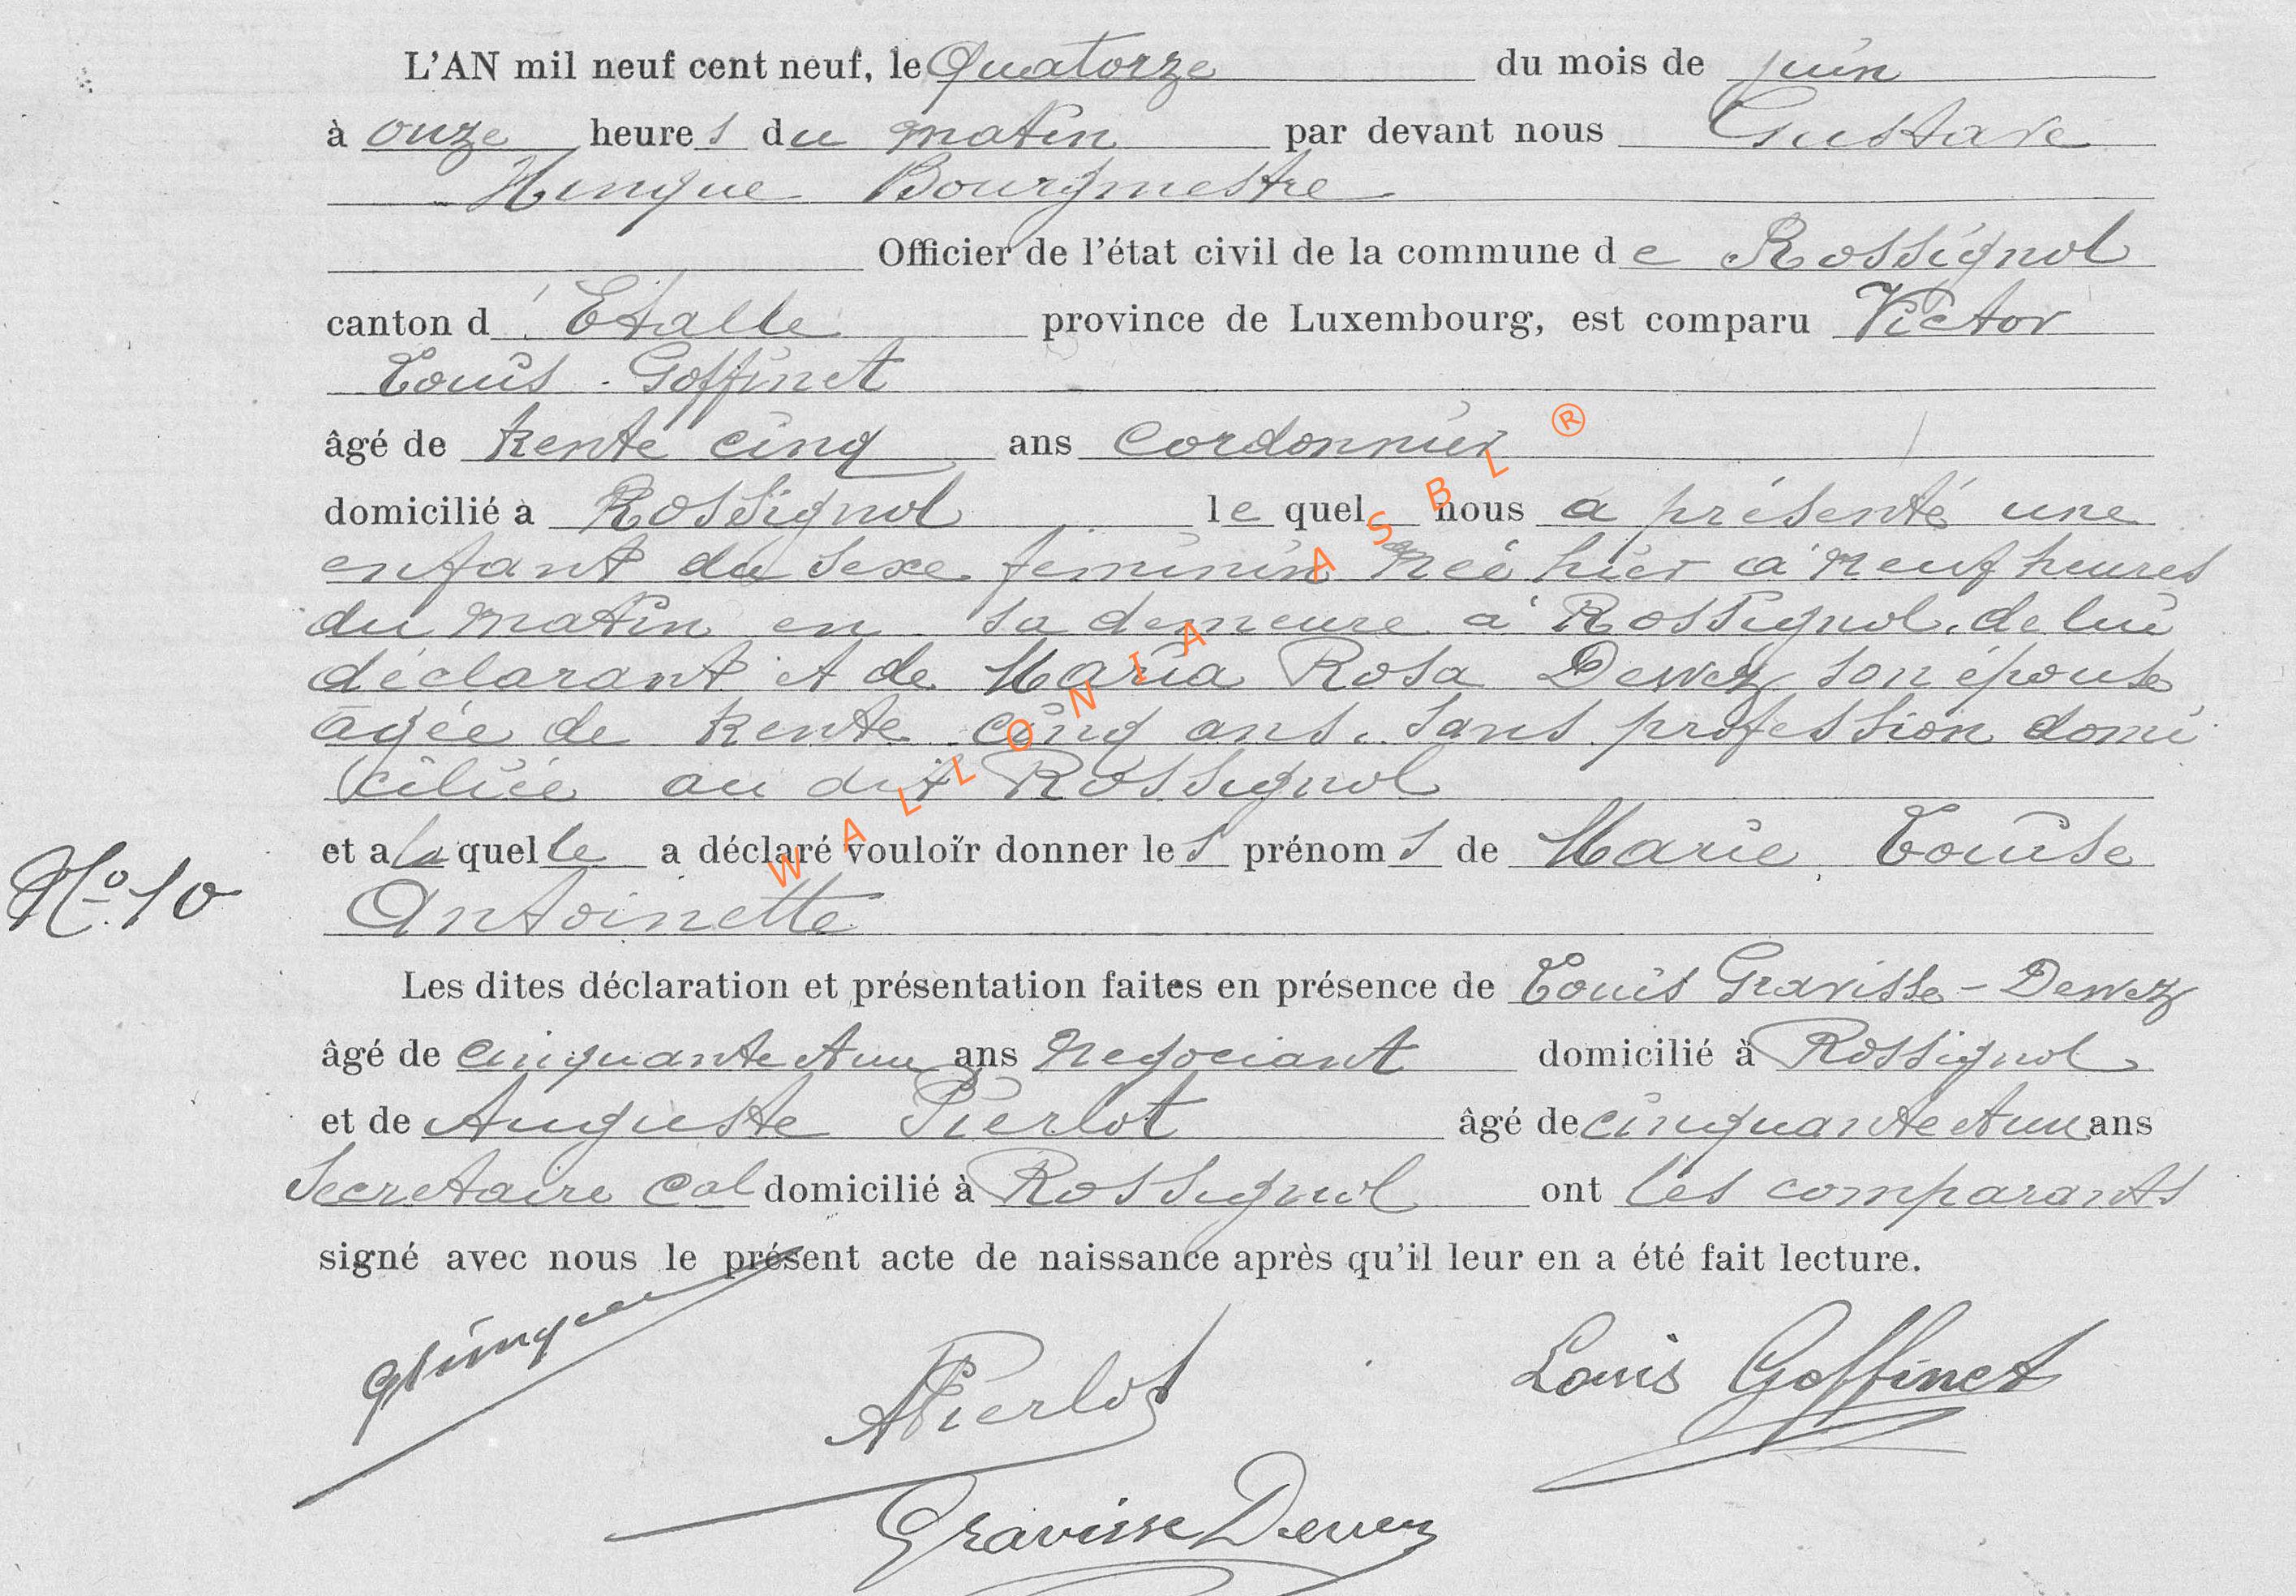 L'AN mil neuf cent neuf, le Quatorze du mois de juin
à onze heures du matin par devant nous Gustave
Hinque Bourgmestre
Officier de l'état civil de la commune de Rossignol
canton d'Etalle province de Luxembourg, est comparu Victor
Louis Goffinet
âgé de trente cinq ans cordonnier
domicilié à Rossignol lequel nous a présenté une
enfant du sexe feminin née hier à neuf heures
du matin en sa demeure à Rossignol, de lui
déclarant et de Maria Rosa Dewez son épouse
agée de trente cinq ans, sans profession domi
ciliée au dit Rossignol
et a laquelle a déclaré vouloir donner les prénoms de Marie Louise
N° 10
Antoinette
Les dites déclaration et présentation faites en présence de Louis Gravisse-Dewez
âgé de cinquante et un ans negociant domicilié à Rossignol
et de Auguste Pierlot âgé de cinquante et un ans
Secretaire cal domicilié à Rossignol ont les comparants
signé avec nous le présent acte de naissance après qu'il leur en a été fait lecture.
GHinque
APierlot
Louis Goffinet
Gravisse Dewez
WALLONIA ASBL ®